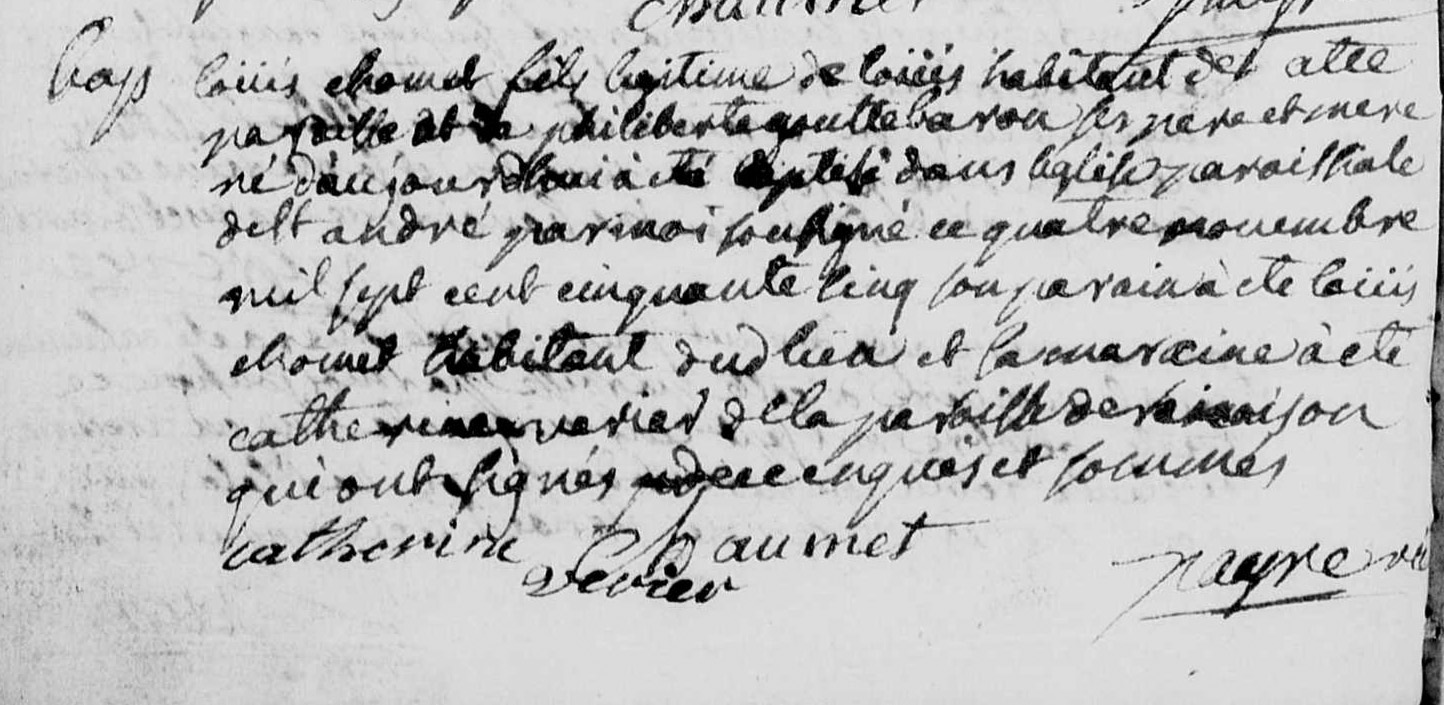 Chaumet payre
bap louis chomet fils legitime de louiis habitant det cette
paroisse et de philiberte gouttebaron ses pere et mere
né daujourdhui à eté baptisé dans leglise paroissiale
de st andré par moi soussigné ce quatre nouembre
mil sept cent cinquante cinq son parain à ete louiis
chomet habitant dud lieu et la maraine à ete
catherine verier de la paroisse de renaison
qui ont signés de ce enquis et sommés
catherine Chaumet
verier payre